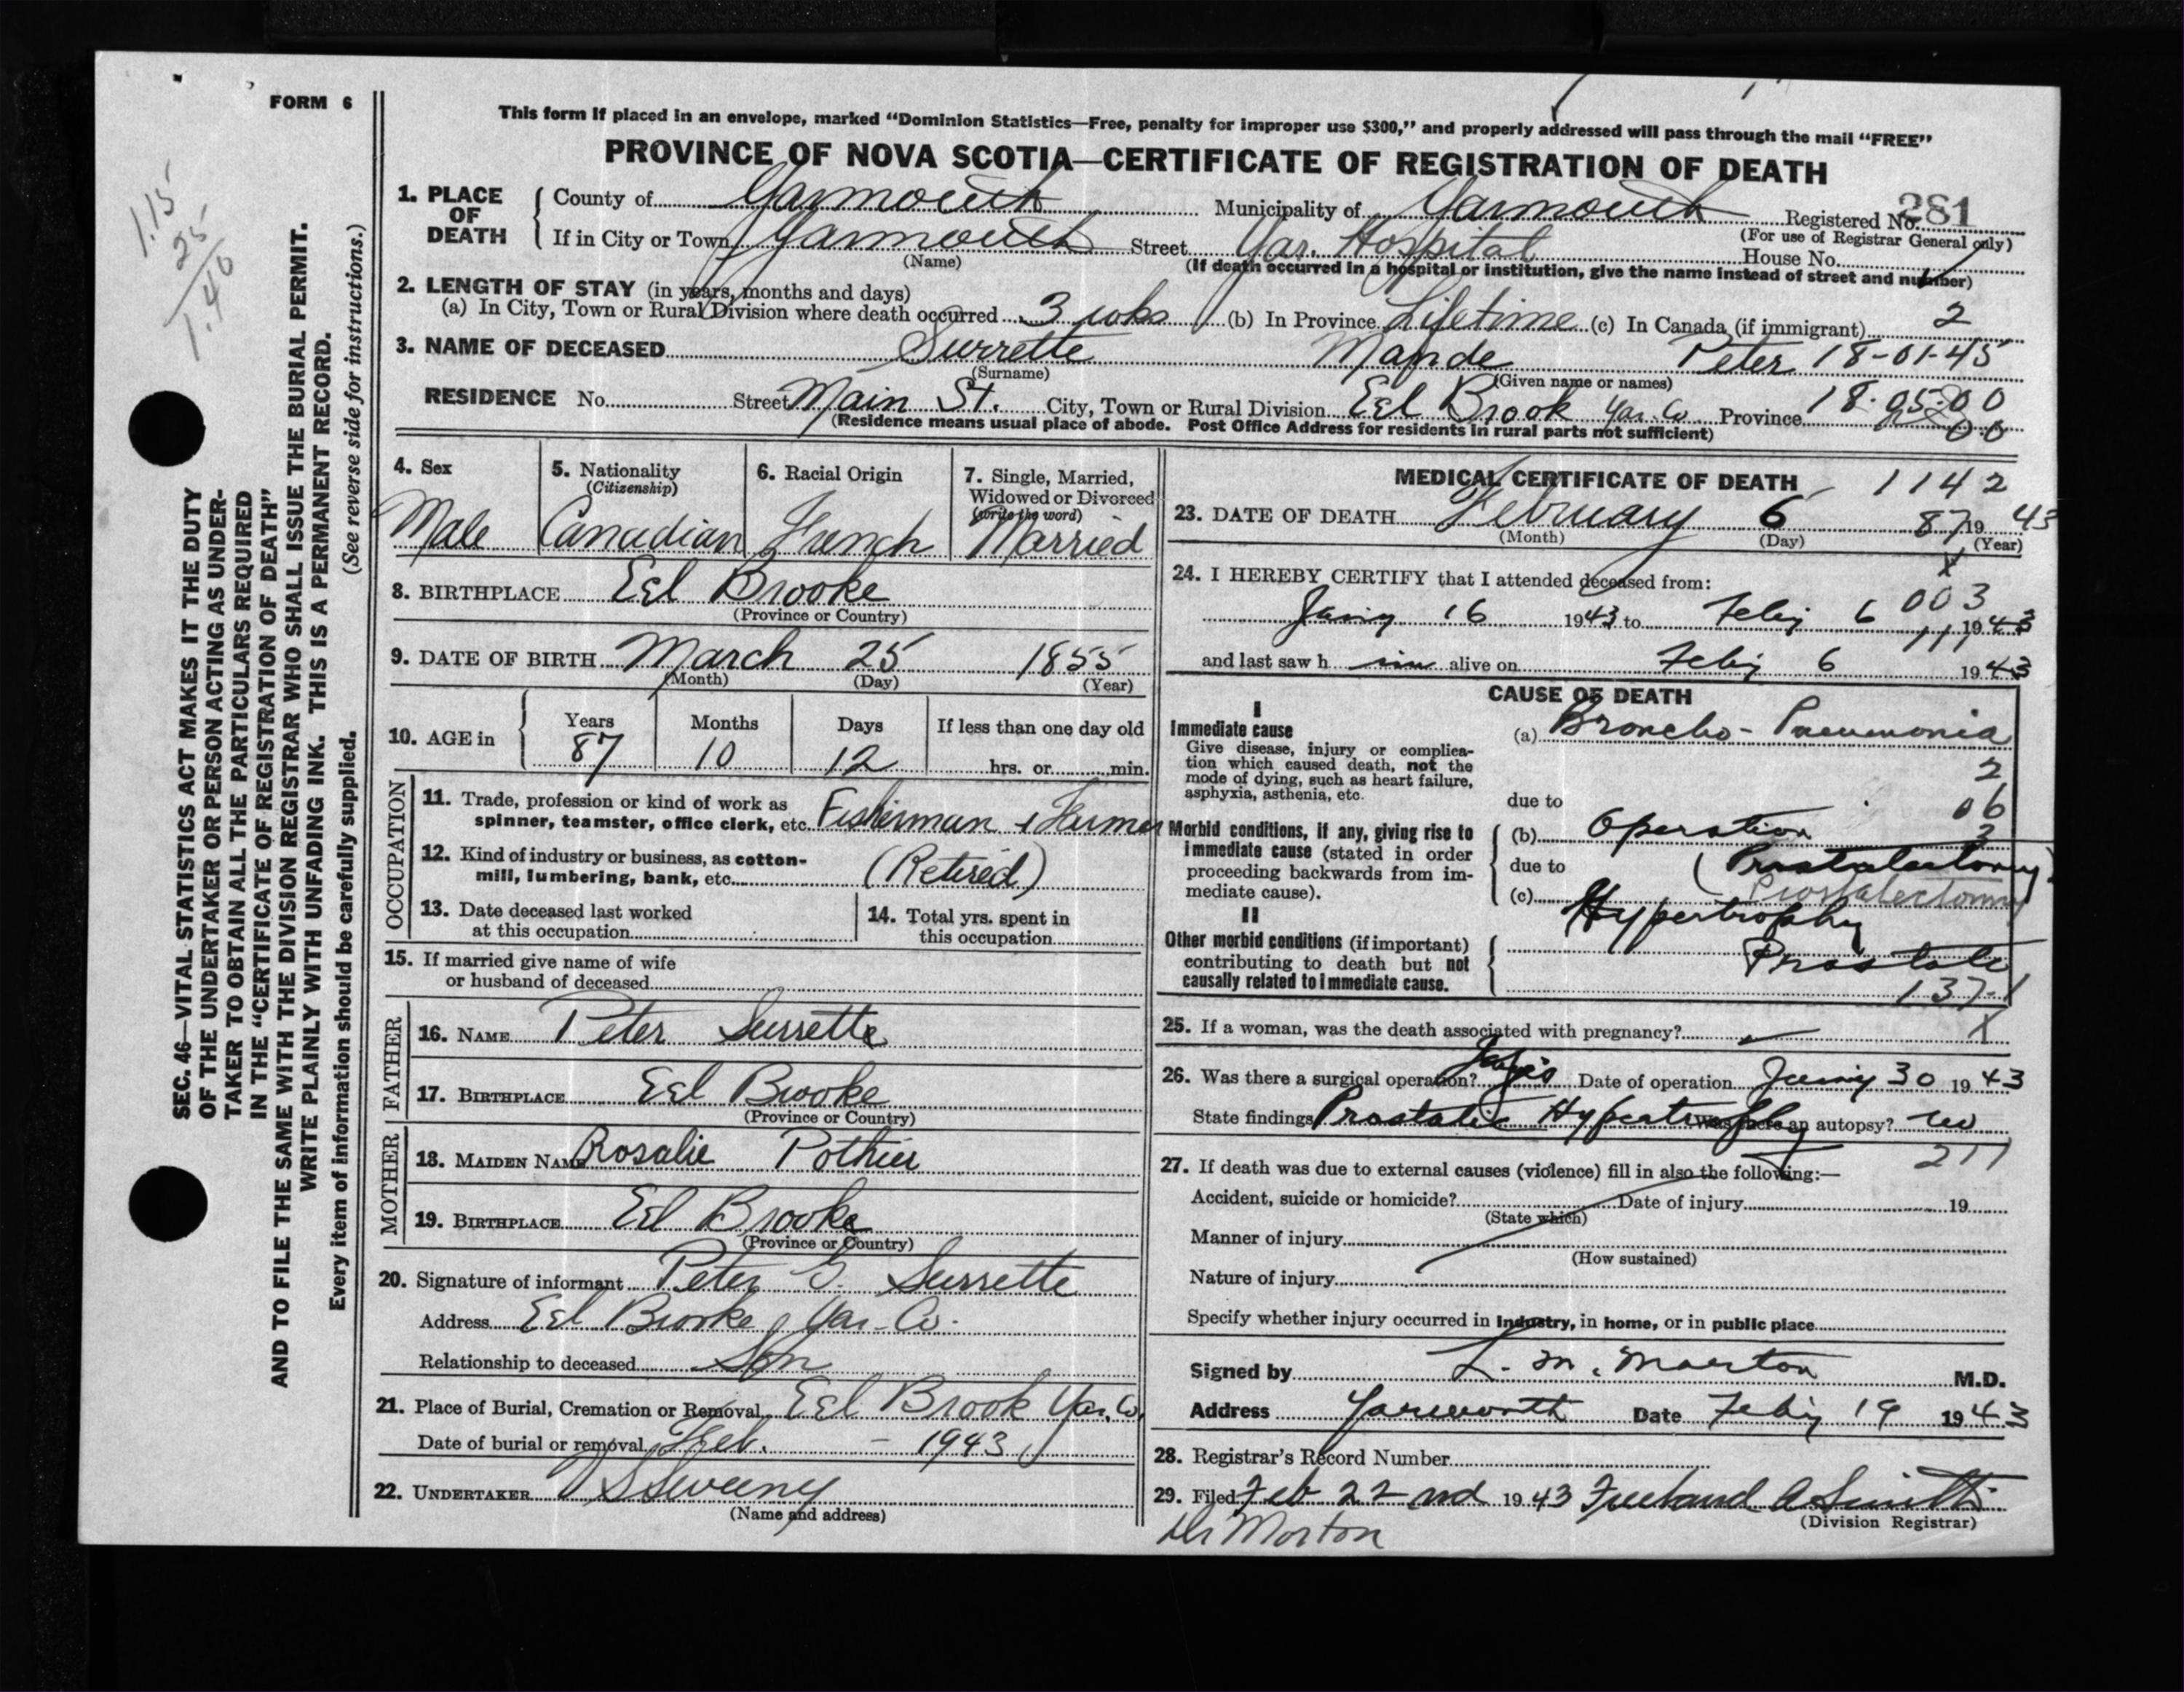 FORM 6
This form if placed in an envelope, marked "Dominion Statistics—Free, penalty for improper use $300," and properly addressed will pass through the mail "FREE"
PROVINCE OF NOVA SCOTIA—CERTIFICATE OF REGISTRATION OF DEATH
1.15
25
1.40
SEC. 46—VITAL STATISTICS ACT MAKES IT THE DUTY
OF THE UNDERTAKER OR PERSON ACTING AS UNDER-
TAKER TO OBTAIN ALL THE PARTICULARS REQUIRED
IN THE "CERTIFICATE OF REGISTRATION OF DEATH"
AND TO FILE THE SAME WITH THE DIVISION REGISTRAR WHO SHALL ISSUE THE BURIAL PERMIT.
WRITE PLAINLY WITH UNFADING INK. THIS IS A PERMANENT RECORD.
Every item of information should be carefully supplied. (See reverse side for instructions.)
1. PLACE OF DEATH
County of Yarmouth Municipality of Yarmouth Registered No. 281
(For use of Registrar General only)
If in City or Town Yarmouth Street Yar. Hospital House No.
(Name) (If death occurred in a hospital or institution, give the name instead of street and number)
2. LENGTH OF STAY (in years, months and days)
(a) In City, Town or Rural Division where death occurred 3 wks (b) In Province Lifetime (c) In Canada (if immigrant) 2
3. NAME OF DECEASED Surrette Mande Peter 18-01-45
(Surname) (Given name or names)
RESIDENCE No. Street Main St. City, Town or Rural Division Eel Brook Yar. Co Province 18-05-00
00
(Residence means usual place of abode. Post Office Address for residents in rural parts not sufficient)
4. Sex
Male
5. Nationality
(Citizenship)
Canadian
6. Racial Origin
French
7. Single, Married,
Widowed or Divorced
(write the word)
Married
8. BIRTHPLACE Eel Brooke
(Province or Country)
9. DATE OF BIRTH March 25 1855
(Month) (Day) (Year)
10. AGE in
Years Months Days If less than one day old
87 10 12 hrs. or min.
OCCUPATION
11. Trade, profession or kind of work as
spinner, teamster, office clerk, etc. Fisherman + Farmer
12. Kind of industry or business, as cotton-
mill, lumbering, bank, etc. (Retired)
13. Date deceased last worked
at this occupation
14. Total yrs. spent in
this occupation
15. If married give name of wife
or husband of deceased
FATHER
16. NAME Peter Surrette
17. BIRTHPLACE Eel Brooke
(Province or Country)
MOTHER
18. MAIDEN NAME Rosalie Pothier
19. BIRTHPLACE Eel Brooke
(Province or Country)
20. Signature of informant Peter S. Surrette
Address Eel Brooke, Yar-Co.
Relationship to deceased Son
21. Place of Burial, Cremation or Removal Eel Brook Yar. Co.
Date of burial or removal Feb. - 1943
22. UNDERTAKER V S Sweeny
(Name and address)
MEDICAL CERTIFICATE OF DEATH 1142
23. DATE OF DEATH February 6 87 19 43
(Month) (Day) (Year)
X
24. I HEREBY CERTIFY that I attended deceased from:
003
Jany 16 1943 to Feby 6 1943
111
and last saw h im alive on Feby 6 1943
CAUSE OF DEATH
I
Immediate cause
Give disease, injury or complica-
tion which caused death, not the
mode of dying, such as heart failure,
asphyxia, asthenia, etc.
(a) Broncho-Pneumonia
2
due to 06
Morbid conditions, if any, giving rise to
immediate cause (stated in order
proceeding backwards from im-
mediate cause).
(b) Operation 3
due to (Prostatectomy)
(c) Prostatectomy
Hypertrophy
II
Other morbid conditions (if important)
contributing to death but not
causally related to immediate cause.
Prostate
137-1
25. If a woman, was the death associated with pregnancy? X
26. Was there a surgical operation? Yes Date of operation Jany 30 1943
State findings Prostatic Hypertrophy Was there an autopsy? no
27. If death was due to external causes (violence) fill in also the following:— 211
Accident, suicide or homicide? Date of injury 19
(State which)
Manner of injury
(How sustained)
Nature of injury
Specify whether injury occurred in industry, in home, or in public place
Signed by L. M. Morton M.D.
Address Yarmouth Date Feby 19 1943
28. Registrar's Record Number
29. Filed Feb 22nd 1943 Freeland A Smith
(Division Registrar)
Dr Morton